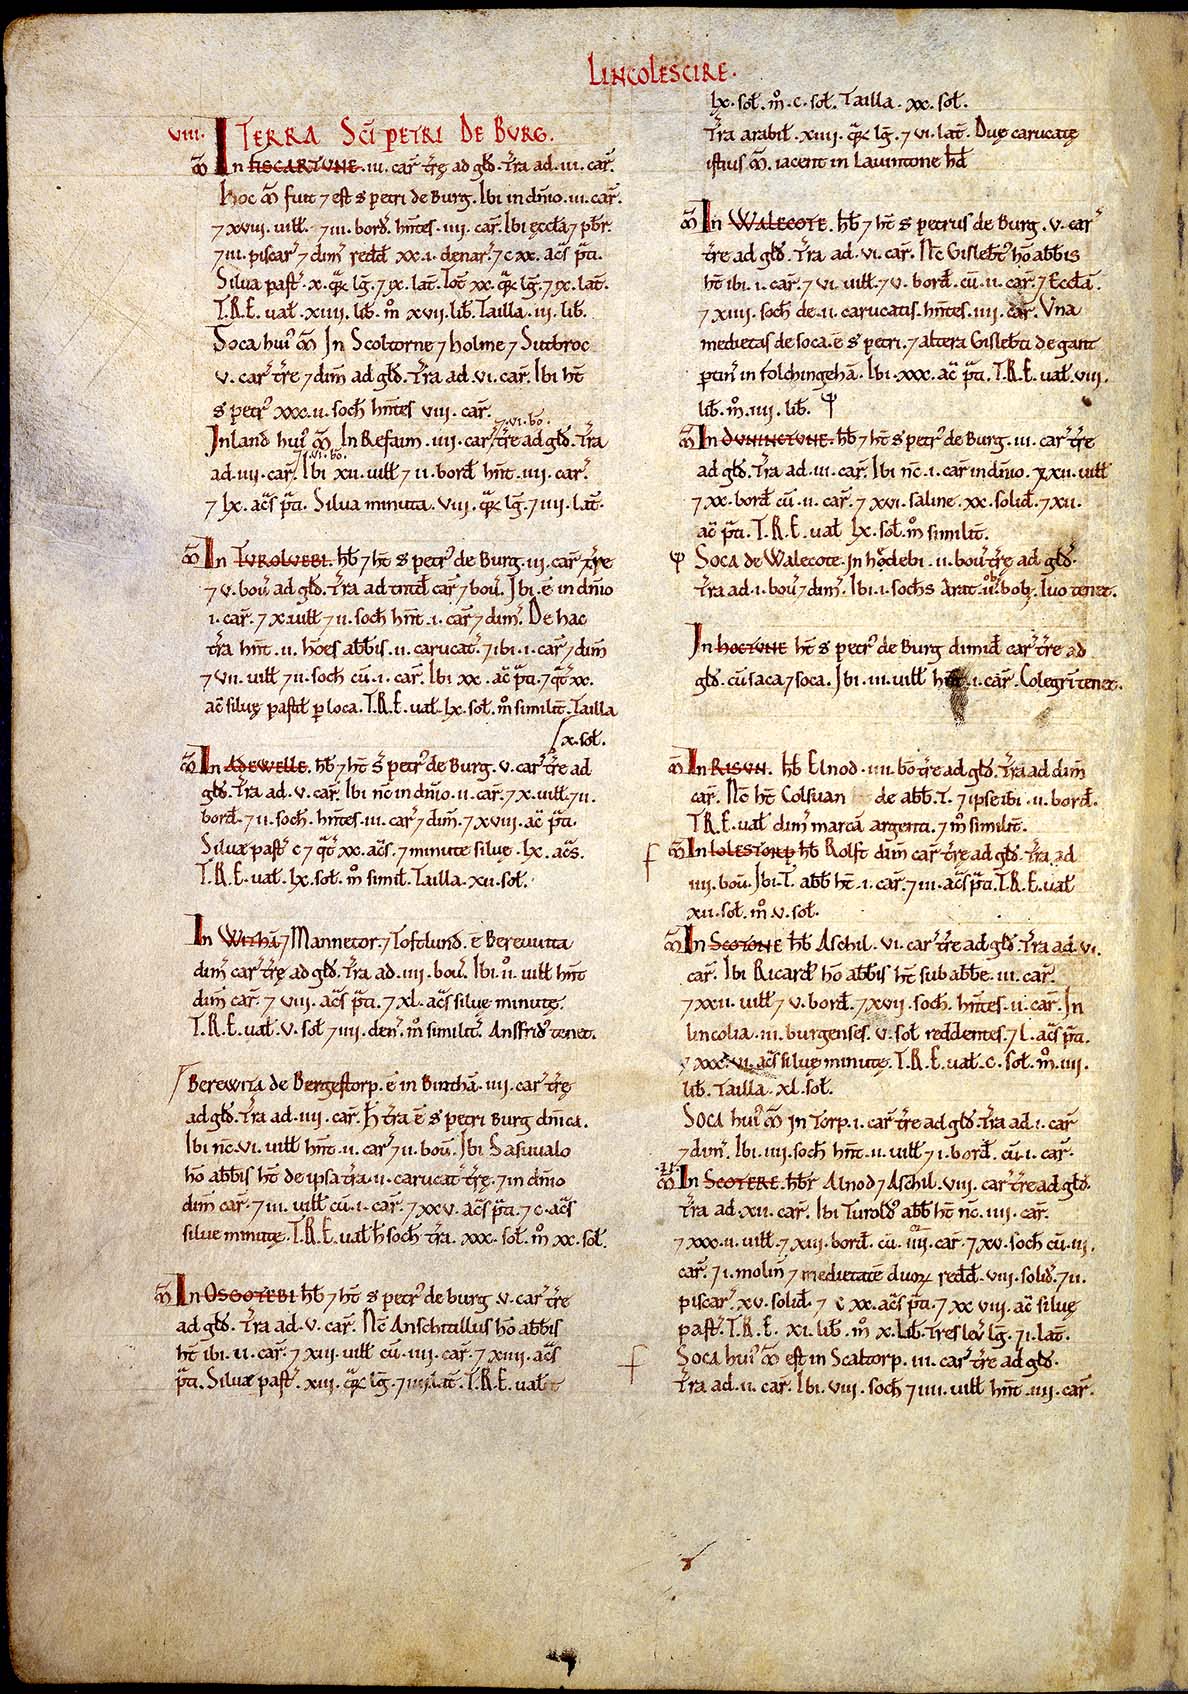 LINCOLESCIRE.
VIII. TERRA SC̄I PETRI DE BURG.
M̃ In FISCARTUNE .iii. car̃ t̃rę ad gld̃. T̃ra ad .iii. car̃.
Hoc M̃ fuit ⁊ est S petri de Burg. Ibi in dn̄io .iii. car̃.
⁊ xviii. uilł. ⁊ iii. bord̃. hn̄tes .iiii. car̃. Ibi ęccła ⁊ pb̄r.
⁊ iii. piscar̃ ⁊ dim̃ redd̃ xx.i. denar̃. ⁊ c xx. ac̃s p̃ti.
Silua past̃ .x. q̃rę lḡ. ⁊ ix. lat̃. Tot̃ xx. q̃rę lḡ. ⁊ ix. lat̃.
T.R.E. uał .xiiii. lib̃. m̊ xvii. lib̃. Tailla .iii. lib̃.
Soca hui' M̃ In Scoltorne ⁊ Holme ⁊ Sutbroc
v. car̃ t̃re ⁊ dim̃ ad gld̃. T̃ra ad .vi. car̃. Ibi ht̃
S petr' xxx.ii. soch̃ hn̄tes viii. car̃.
Inland hui' M̃ In Refaim .iiii. car̃ t̃re ad gld̃. T̃ra
⁊ .vi. bo.
ad .iiii. car̃. ⁊ .vi. bo. Ibi xii. uilł ⁊ ii. bord̃ hn̄t .iiii. car̃
⁊ lx. ac̃s p̃ti. Silua minuta .viii. q̃rę lḡ. ⁊ iiii. lat̃.
M̃ In TUROLUEBI. hb̃ ⁊ ht̃ S petr' de Burg. iii. car̃ t̃re
⁊ v. bou' ad gld̃. T̃ra ad tntd̃ car̃ ⁊ bou'. Ibi .ē in dn̄io
.i. car̃. ⁊ x. uilł ⁊ ii. soch̃ hn̄t .i. car̃ ⁊ dim̃. De hac
t̃ra hn̄t .ii. hōes abb̃is .ii. carucat̃. ⁊ ibi .i. car̃ ⁊ dim̃
⁊ vii. uilł ⁊ ii. soch̃ cū .i. car̃. Ibi xx. ac̃ p̃ti. ⁊ q̃t xx.
ac̃ siluę pastił p loca. T.R.E. uał lx. soł. m̊ similit̃. Tailla
x. soł.
M̃ In ADEWELLE. hb̃ ⁊ ht̃ S petr' de Burg. v. car̃ t̃re ad
gld̃. T̃ra ad .v. car̃. Ibi nc̄ in dn̄io .ii. car̃. ⁊ x. uilł. ⁊ ii.
bord̃. ⁊ ii. soch̃. hn̄tes .iii. car̃ ⁊ dim̃. ⁊ xviii. ac̃ p̃ti.
Siluæ past̃ c ⁊ q̃t xx. ac̃s. ⁊ minutę siluę .lx. ac̃s.
T.R.E. uał lx. soł. m̊ simił. Tailla .xii. soł.
In WITHĀ ⁊ Mannetor. ⁊ Toftlund. ē Bereuuita
dim̃ car̃ t̃rę ad gld̃. T̃ra ad .iiii. bou'. Ibi .ii. uilł hn̄t
dim̃ car̃. ⁊ viii. ac̃s p̃ti. ⁊ xl. ac̃s siluę minutę.
T.R.E. uał .v. soł ⁊ iiii. den̄. m̊ similit̃. Ansfrid' tenet.
Berewita de Bergestorp. ē in Bincham̄ .iiii. car̃ t̃rę
ad gld̃. T̃ra ad .iiii. car̃. H̃ t̃ra ē S petri Burg dn̄ica.
Ibi nc̄ .vi. uilł hn̄t .ii. car̃ ⁊ ii. bou'. Ibi Sasuualo
hō abb̃is ht̃ de ipsa t̃ra .ii. carucat̃ t̃rę. ⁊ in dn̄io
dim̃ car̃. ⁊ iii. uilł cū .i. car̃. ⁊ xxv. ac̃s p̃ti. ⁊ c. ac̃s
silue minutę. T.R.E. uał h̃ soch̃ t̃ra .xxx. soł. m̊ xx. soł.
M̃ In OSGOTEBI hb̃ ⁊ ht̃ S petr' de burg .v. car̃ t̃re
ad gld̃. T̃ra ad .v. car̃. Nc̄ Anschitillus hō abb̃is
ht̃ ibi .ii. car̃. ⁊ xiii. uilł cū .iiii. car̃. ⁊ xiiii. ac̃s
p̃ti. Siluæ past̃ .xiii. q̃rę lḡ. ⁊ iiii lat̃. T.R.E. uał
lx. soł. m̊ .c. soł. Tailla .xx. soł.
T̃ra arabił .xiiii. q̃rę lḡ. ⁊ vi. lat̃. Duę carucatę
istius M̃. iacent in Lauintone hd̃
M̃ In WALECOTE. hb̃ ⁊ ht̃ S petrus de Burg. v. car̃
t̃re ad gld̃. T̃ra ad .vi. car̃. Nc̄ Gislebt̃ hō abb̃is
ht̃ ibi .i. car̃. ⁊ vi. uilł. ⁊ v. bord̃. cū .ii. car̃. ⁊ Eccłā.
⁊ xiiii. soch̃ de .ii. carucatis. hn̄tes .iiii. car̃. Una
medietas de soca .ē S petri. ⁊ altera Gislebti de gant
ptin̄ in Folchingehā. Ibi .xxx. ac̃ p̃ti. T.R.E. uał .viii.
lib̃. m̊ .iiii. lib̃. ψ
M̃ In DUNINCTUNE. hb̃ ⁊ ht̃ S petr' de Burg. iii. car̃ t̃re
ad gld̃. T̃ra ad .iii. car̃. Ibi nc̄ .i. car̃ in dn̄io. ⁊ xxii. uilł
⁊ xx. bord̃ cū .ii. car̃. ⁊ xvi. saline .xx. solid̃. ⁊ xii.
ac̃ p̃ti. T.R.E. uał lx. soł. m̊ similit̃.
ψ Soca de Walecote. In hodebi .ii. bou' t̃rę ad gld̃.
T̃ra ad .i. bou' ⁊ dim̃. Ibi .i. soch̃s arat .ii. bob3. Iuo tenet.
In HOCTUNE ht̃ S petr' de Burg dimid̃ car̃ t̃re ad
gld̃. cū saca ⁊ soca. Ibi .iii. uilł hn̄t .i. car̃. Colegrī tenet.
M̃ In RISUN. hb̃ Elnod .iiii. bō t̃re ad gld̃. T̃ra ad dim̃
car̃. Nc̄ ht̃ Colsuan de abb̃. T. ⁊ ipse ibi .ii. bord̃.
T.R.E. uał dim̃ marcā argenti. ⁊ m̊ similit̃.
f M̃ In IOLESTORP hb̃ Rolft dim̃ car̃ t̃rę ad gld̃. T̃ra ad
.iiii. bou'. Ibi .T. abb̃ ht̃ .i. car̃. ⁊ iii. ac̃s p̃ti. T.R.E. uał
xii. soł. m̊ .v. soł.
M̃ In SCOTONE hb̃ Aschil .vi. car̃ t̃re ad gld̃. T̃ra ad .vi.
car̃. Ibi Ricard' hō abb̃is ht̃ sub abb̃e .iii. car̃.
⁊ xxii. uilł ⁊ v. bord̃. ⁊ xvii. soch̃. hn̄tes .ii. car̃. In
lincolia .iii. burgenses .v. soł reddentes. ⁊ l. ac̃s p̃ti.
⁊ xxx.vi. ac̃s siluę minutę. T.R.E. uał .c. soł. m̊ .iiii.
lib̃. Tailla .xl. soł.
Soca hui' M̃ In Torp .i. car̃ t̃re ad gld̃. T̃ra ad .i. car̃
⁊ dim̃. Ibi .iiii. soch̃ hn̄t .ii. uilł ⁊ i. bord̃. cū .i. car̃.
.II. M̃ In SCOTERE. hb̃r Alnod ⁊ Aschil .viii. car̃ t̃re ad gld̃.
T̃ra ad .xii. car̃. Ibi Turold' abb̃ ht̃ nc̄ .iiii. car̃.
⁊ xxx.ii. uilł. ⁊ xiii. bord̃. cū .iiii. car̃. ⁊ xv. soch̃ cū .iii.
car̃. ⁊ i. molin̄ ⁊ medietatē duoꝝ redd̃ .viii. solid̃. ⁊ ii.
piscar̃ .xv. solid̃. ⁊ c xx. ac̃s p̃ti. ⁊ xx viii. ac̃ siluę
past̃. T.R.E. xi. lib̃. m̊ x. Lib̃. Tres leu' lḡ. ⁊ i. lat̃.
f Soca hui' M̃ est in Scaltorp. iii. car̃ t̃re ad gld̃.
T̃ra ad .ii. car̃. Ibi .viii. soch̃ ⁊ iiii. uilł hn̄t .iiii. car̃.